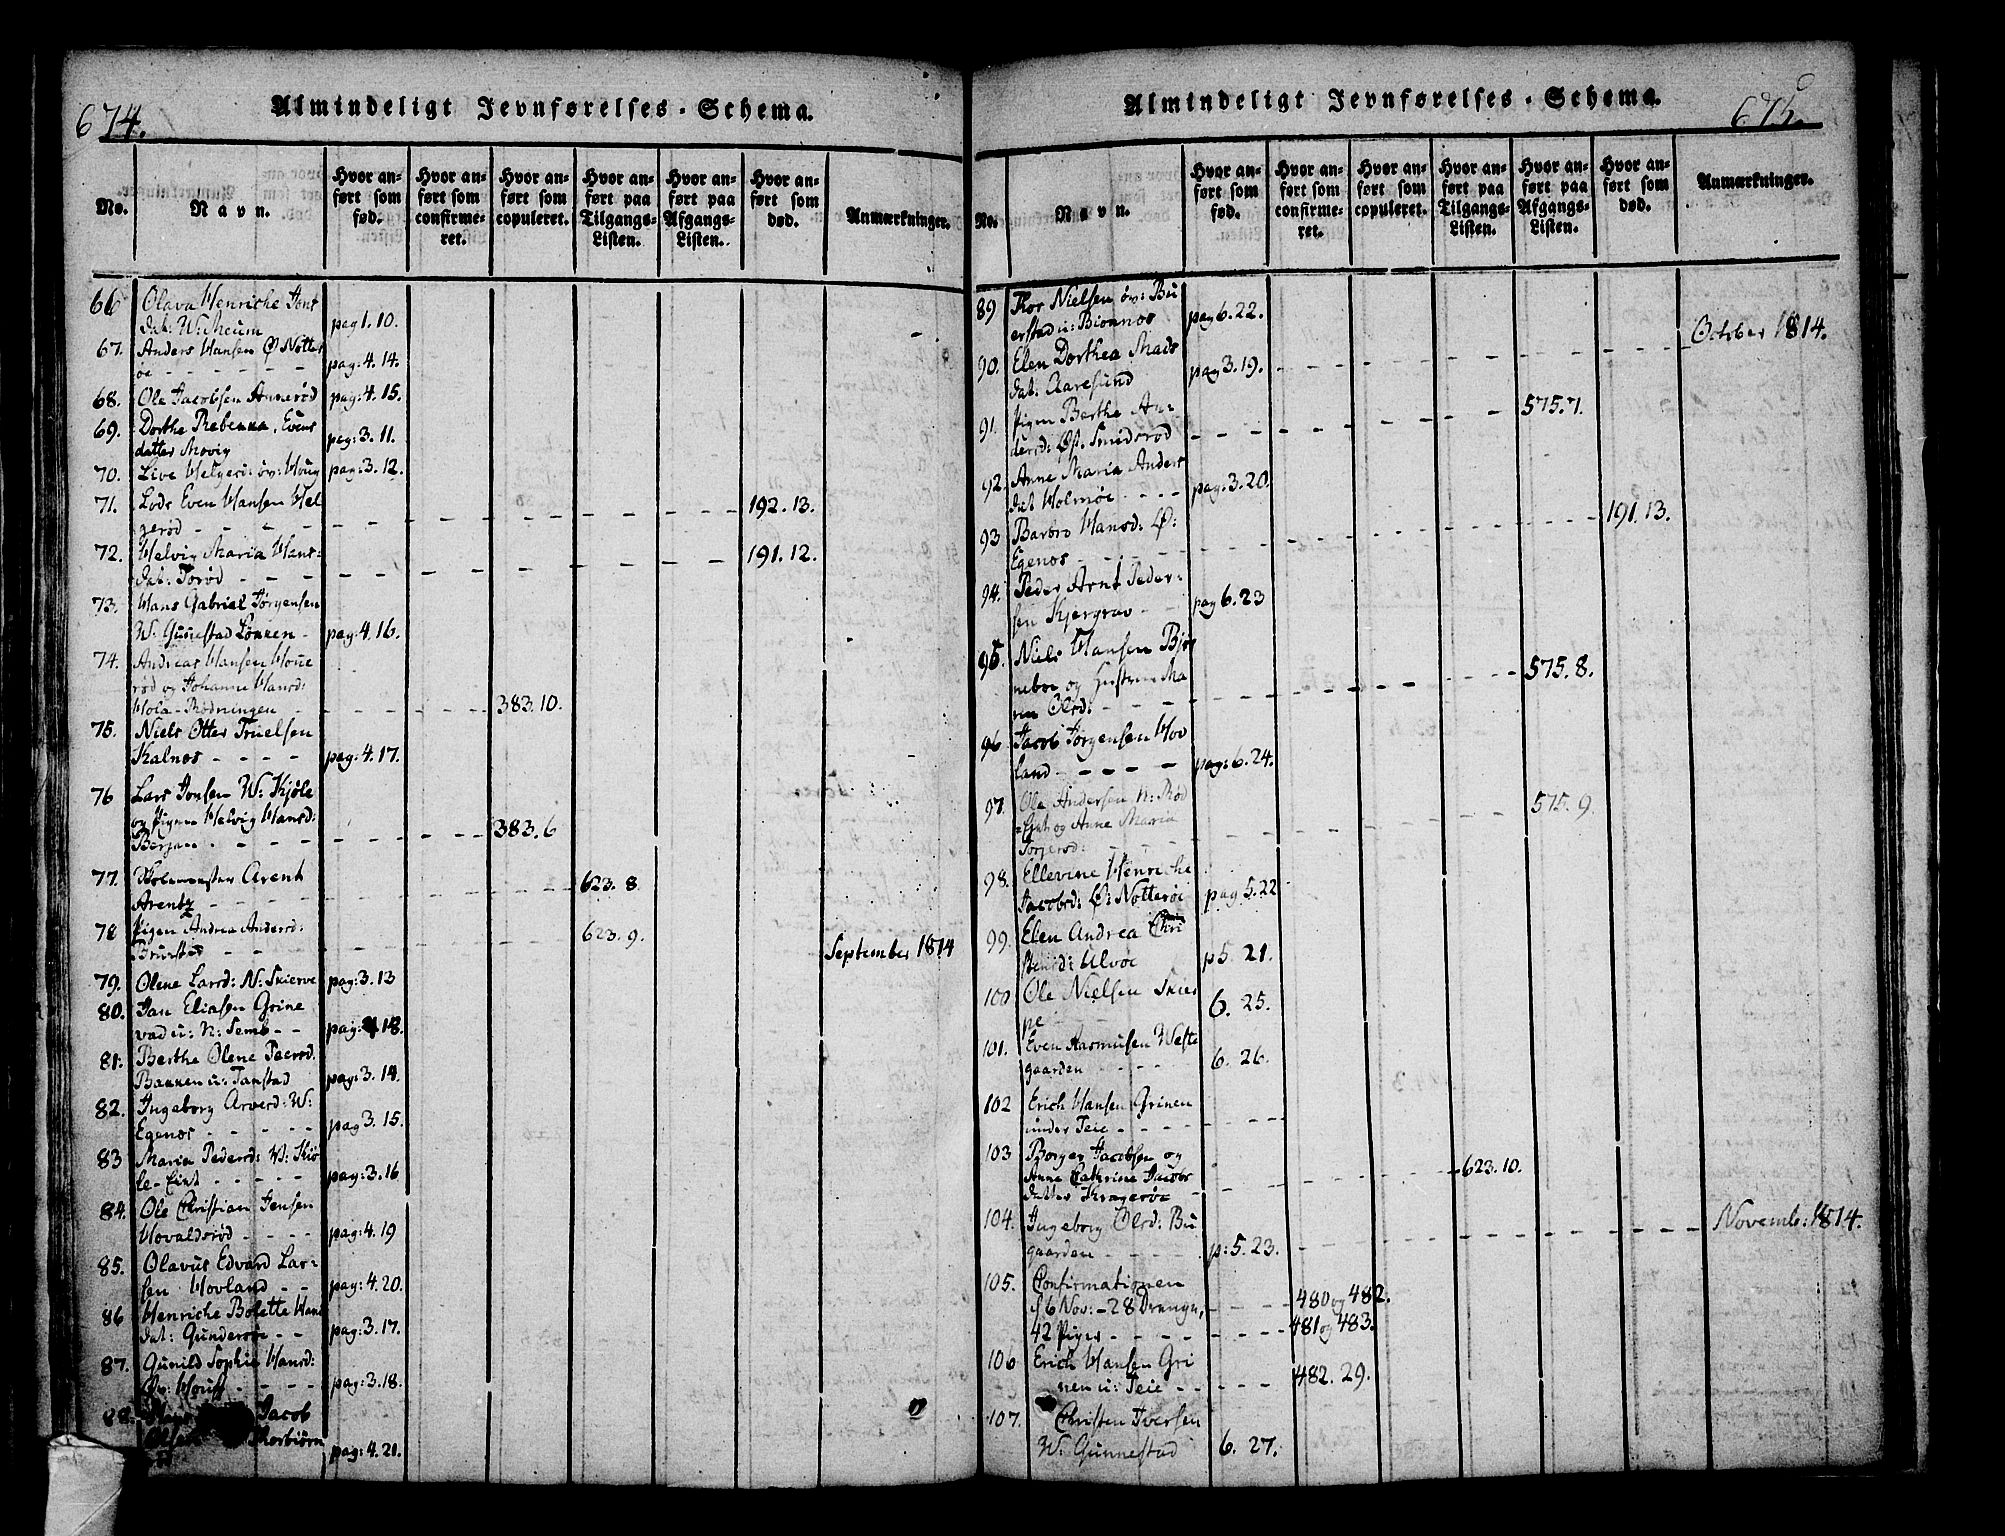 674.
Almindeligt Jevnførelses-Schema.
No.
Navn.
Hvor anført som fød.
Hvor anført som confirmeret.
Hvor anført som copuleret.
Hvor anført paa Tilgangs-Listen.
Hvor anført paa Afgangs-Listen.
Hvor anført som død.
Anmærkninger.
66 Olava Henriche Jons
dat: W: Meum pag 1. 10.
67. Anders Hansen Ø Nøtter
øe - - - - - - pag: 4. 14.
68. Ole Jacobsen Annerød pag: 4. 15.
69. Dorthe Rebecca Evens
datter Movig pag: 3. 11.
70. Live Helgerd: øv: Houg pag: 3. 12.
71. Lods Even Hansen Hel
gerød - - - - 192. 13.
72. Helvig Maria Hans:
dat: Torød - - - 191. 12.
73. Hans Gabriel Jørgensen
W. Gunestad Løkken - pag: 4. 16.
74. Andreas Hansen Houe
rød og Johanne Hansd:
Hola-Rødningen - - - - 383. 10.
75. Niels Otter Truelsen
Kalnes - - - - pag: 4. 17.
76 Lars Jonsen W: Kjøle
og Pigen Helvig Hansd:
Bergan - - - - 383. 6
77. Skolemester Arent
Arentz - - - - 623. 8
78 Pigen Andrea Andersd:
Bruestad - - 623. 9. September 1814
79. Olene Larsd: N: Skierve pag: 3. 13
80. Jan Eliasen Grine
vad u: N: Semb - - pag: 4 18.
81. Berthe Olene Peersd.
Bakken u: Tanstad pag: 3. 14.
82. Ingeborg Arvesd: W:
Egenes - - - - - pag 3. 15.
83 Maria Pedersd: W: Kiø
le-Eint - - - - - pag: 3. 16
84. Ole Christian Jensen
Hovaldsrød - - - - pag: 4. 19
85. Olavus Edvard Lar-
sen Hovland - - pag: 4. 20.
86 Henriche Bolette Hans
dat: Gundersøe - - pag: 3. 17.
87. Gunild Sophie Hansd:
Øv: Houg - - - - pag: 3. 18.
88. Hans Jacob
Olsen Thorbiørn
pag: 4. 21.
Almindeligt Jevnførelses-Schema.
675.
No.
Navn.
Hvor anført som fød.
Hvor anført som confirmeret.
Hvor anført som copuleret.
Hvor anført paa Tilgangs-Listen.
Hvor anført paa Afgangs-Listen.
Hvor anført som død.
Anmærkninger.
89 Thor Nielsen øv: Bu
erstad u: Bionnes pag 6. 22. October 1814.
90. Elen Dorthea Mads
dat: Aaresund pag 3. 19.
91. Pigen Berthe An-
dersd: Øst. Smidsrød - - - - 575. 7.
92. Anne Maria Anders
dat Holmøe - - - - pag: 3. 20.
93 Barbro Hansd: Ø:
Egenes - - - - 191. 13.
94. Peder Arnt Peder-
sen Kjergrav - - pag 6. 23
95. Niels Hansen Bjør
neboe og Hustrue Ma
ren Olsd: - - - - 575. 8.
96 Jacob Jørgensen Hov
land - - - - pag: 6. 24.
97. Ole Andersen N: Rød
=Eint og Anne Maria
Torgersd: - - - - 575. 9.
98. Ellevine Henriche
Jacobsd: Ø: Nøtterøe pag 5. 22
99. Elen Andrea Chri
stensd: Ulvøe p 5. 21.
100 Ole Nielsen Skier
pe 6. 25.
101. Even Aasmusen Weste
gaarden - - - - 6. 26.
102 Erich Hansen Grinen
under Teie - - - -
103 Borger Jacobsen og
Anne Cathrine Jacobs
datter Kragerøe - 623. 10.
104. Ingeborg Olsd: Bu
gaarden - - - - p: 5. 23. Novemb: 1814.
105. Confirmationen
16 Nov: - 28 Drenge, - - - - 480 og 482.
42 Piger - - - - 481 og 483.
106 Erich Hansen Gri
nen u: Teie - - - - 482. 29.
107. Christen Iversen
W: Gunnestad 6. 27.